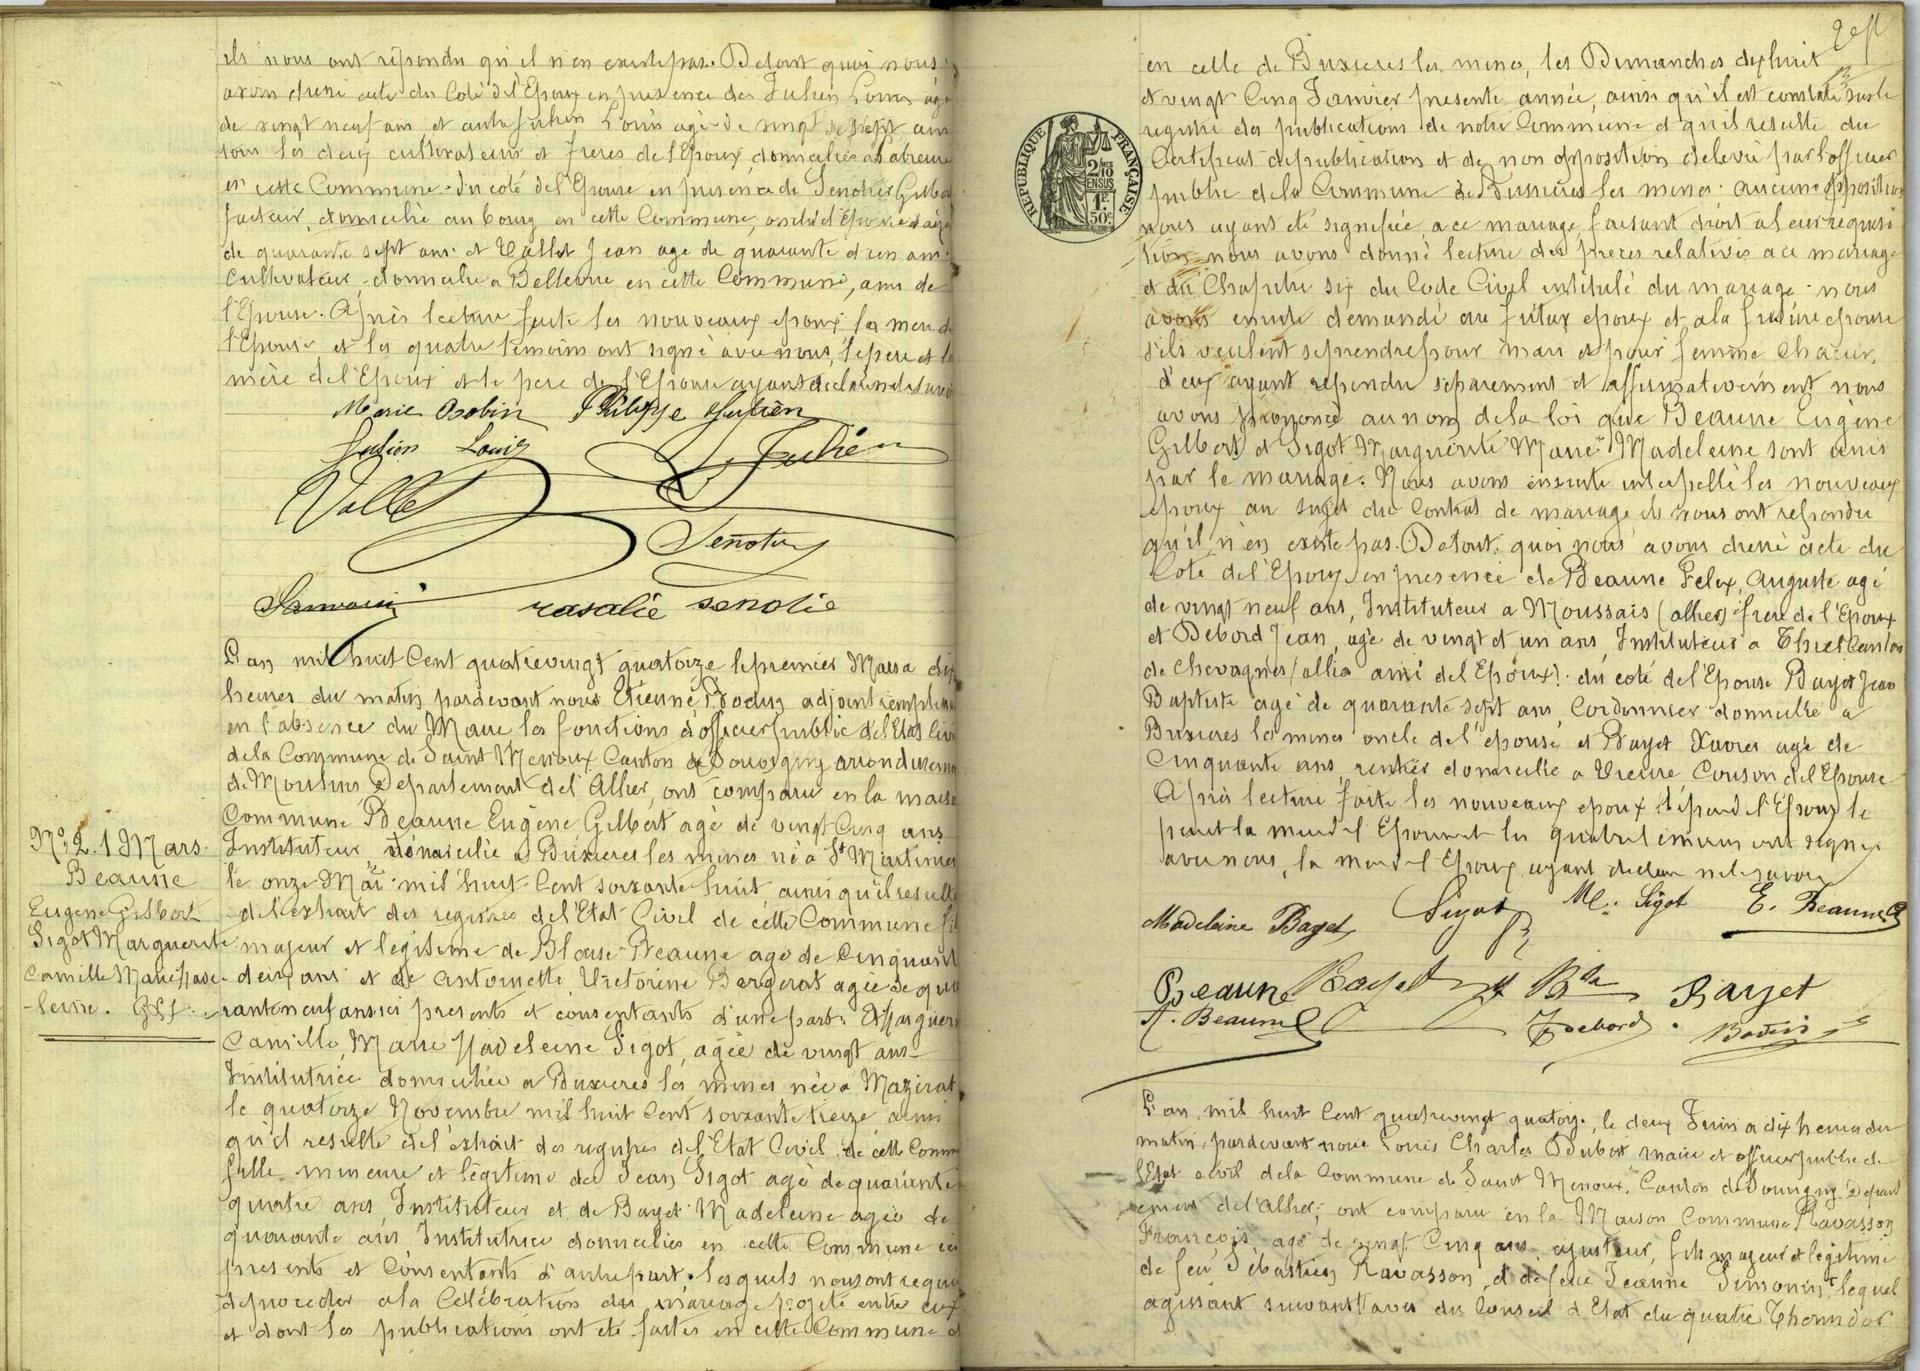 ils nous ont répondu qu'il n'en existe pas. De tout quoi nous
avons dressé acte du coté de l'Epoux en presence de Julien Louis agé
de vingt neuf ans et autre Julien Louis agé de vingt sept ans
tous les deux cultivateurs et frères de l'Epoux domiciliés
en cette Commune. Du coté de l'Epouse en presence de Senotier Gilbert
facteur, domicilié au bourg en cette Commune, oncle de l'Epouse agé
de quarante sept ans et Vallet Jean agé de quarante d'un ans
Cultivateur, domicilié a Bellevue en cette Commune, ami de
l'Epouse. Après lecture faite les nouveaux epoux la mère de
l'Epouse et les quatre temoins ont signé avec nous, le père et la
mère de l'Epoux et le pere de l'Epouse ayant declaré ne le savoir
Marie Philippe Julien
Julien Louis Julien
Vallet
Senotier
rosalie senotie
L'an mil huit Cent quatrevingt quatorze le premier Mars a dix
heures du matin pardevant nous Etienne Bodin adjoint remplissant
en l'absence du Maire les fonctions d'officier public de l'Etat Civil
de la Commune de Saint Menoux Canton de Souvigny arrondissement
de Moulins Departement de l'Allier, ont comparu en la maison
Commune Beaune Eugène Gilbert agé de vingt Cinq ans
Instituteur domicilié a Buxieres les mines né a St Martinien
le onze Mai mil huit Cent soixante huit ainsi qu'il resulte
de l'extrait des registres de l'Etat Civil de cette Commune fils
majeur et legitime de Blaise Beaune agé de Cinquante
deux ans et de Antoinette Victorine Bergerat agée de qua
rante neuf ans ici presents et consentants d'une part. Et Marguerite
Camille Marie Madeleine Sigot, agée de vingt ans
Institutrice domiciliée a Buxieres les mines née a Mazirat
le quatorze Novembre mil huit Cent soixante treize ainsi
qu'il resulte de l'extrait des registres de l'Etat Civil de cette Commune
fille mineure et légitime de Jean Sigot agé de quarante
quatre ans Instituteur et de Bayet Madeleine agée de
quarante ans Institutrice domiciliés en cette Commune ici
presents et Consentants d'autre part. lesquels nous ont requis
de proceder a la Célébration du mariage projeté entre eux
et dont les publications ont été faites en cette Commune et
N° 2. 1 Mars
Beaune
Eugène Gilbert
Sigot Marguerite
Camille Marie Made-
-leine.
en celle de Buxieres les mines, les Dimanches dix huit
et vingt Cinq Janvier presente année, ainsi qu'il est constaté sur le
registre des publications de notre Commune et qu'il resulte du
Certificat de publication et de non opposition délivré par l'officier
public de la Commune de Buxières les mines. aucune opposition
nous ayant été signifiée a ce mariage faisant droit a leur requisi
tion nous avons donné lecture des pieces relatives a ce mariage
et du Chapitre six du Code Civil intitulé du mariage. nous
avons ensuite demandé au futur epoux et a la future epouse
s'ils veulent se prendre pour mari et pour femme Chacun
d'eux ayant repondu separement et affirmativement nous
avons prononcé au nom de la loi que Beaune Eugène
Gilbert et Sigot Marguerite Marie Madeleine sont unis
par le mariage. Nous avons ensuite interpellé les nouveaux
epoux au sujet du Contrat de mariage ils nous ont repondu
qu'il n'en existe pas. De tout quoi nous avons dressé acte du
Coté de l'Epoux en presence de Beaune Felix Auguste agé
de vingt neuf ans, Instituteur a Moussais (allier) frère de l'Epoux
et Debord Jean, agé de vingt et un ans Instituteur a Thiel Canton
de Chevagnes (allier ami de l'Epoux). du coté de l'Epouse Bayet Jean
Baptiste agé de quarante sept ans, Cordonnier domicilié a
Buxieres les mines oncle de l'epouse et Bayet Xavier agé de
Cinquante ans, rentier domicilié a Vieure Cousin de l'Epouse
Après lecture faite les nouveaux epoux le père de l'Epoux le
pere et la mère de l'Epouse et les quatre temoins ont signé
avec nous, la mere de l'Epoux ayant declaré ne le savoir
Madeleine Bayet Sigot M. Sigot E. Beaune
Beaune Bayet J Bte Bayet
A. Beaune J Debord Bodin
L'an mil huit Cent quatrevingt quatorze, le deux Juin a dix heures du
matin, pardevant nous Louis Charles Dubost maire et officier public de
l'Etat civil de la Commune de Saint Menoux, Canton de Souvigny Depart
ement de l'Allier, ont comparu en la Maison Commune Ravasson
François, agé de vingt Cinq ans ajusteur, fils majeur et légitime
de feu Sébastien Ravasson, et de feue Jeanne Simonin, lequel
agissant suivant l'avis du Conseil d'Etat du quatre Thermidor
RÉPUBLIQUE FRANÇAISE
2/10 EN SUS
1F. 50c